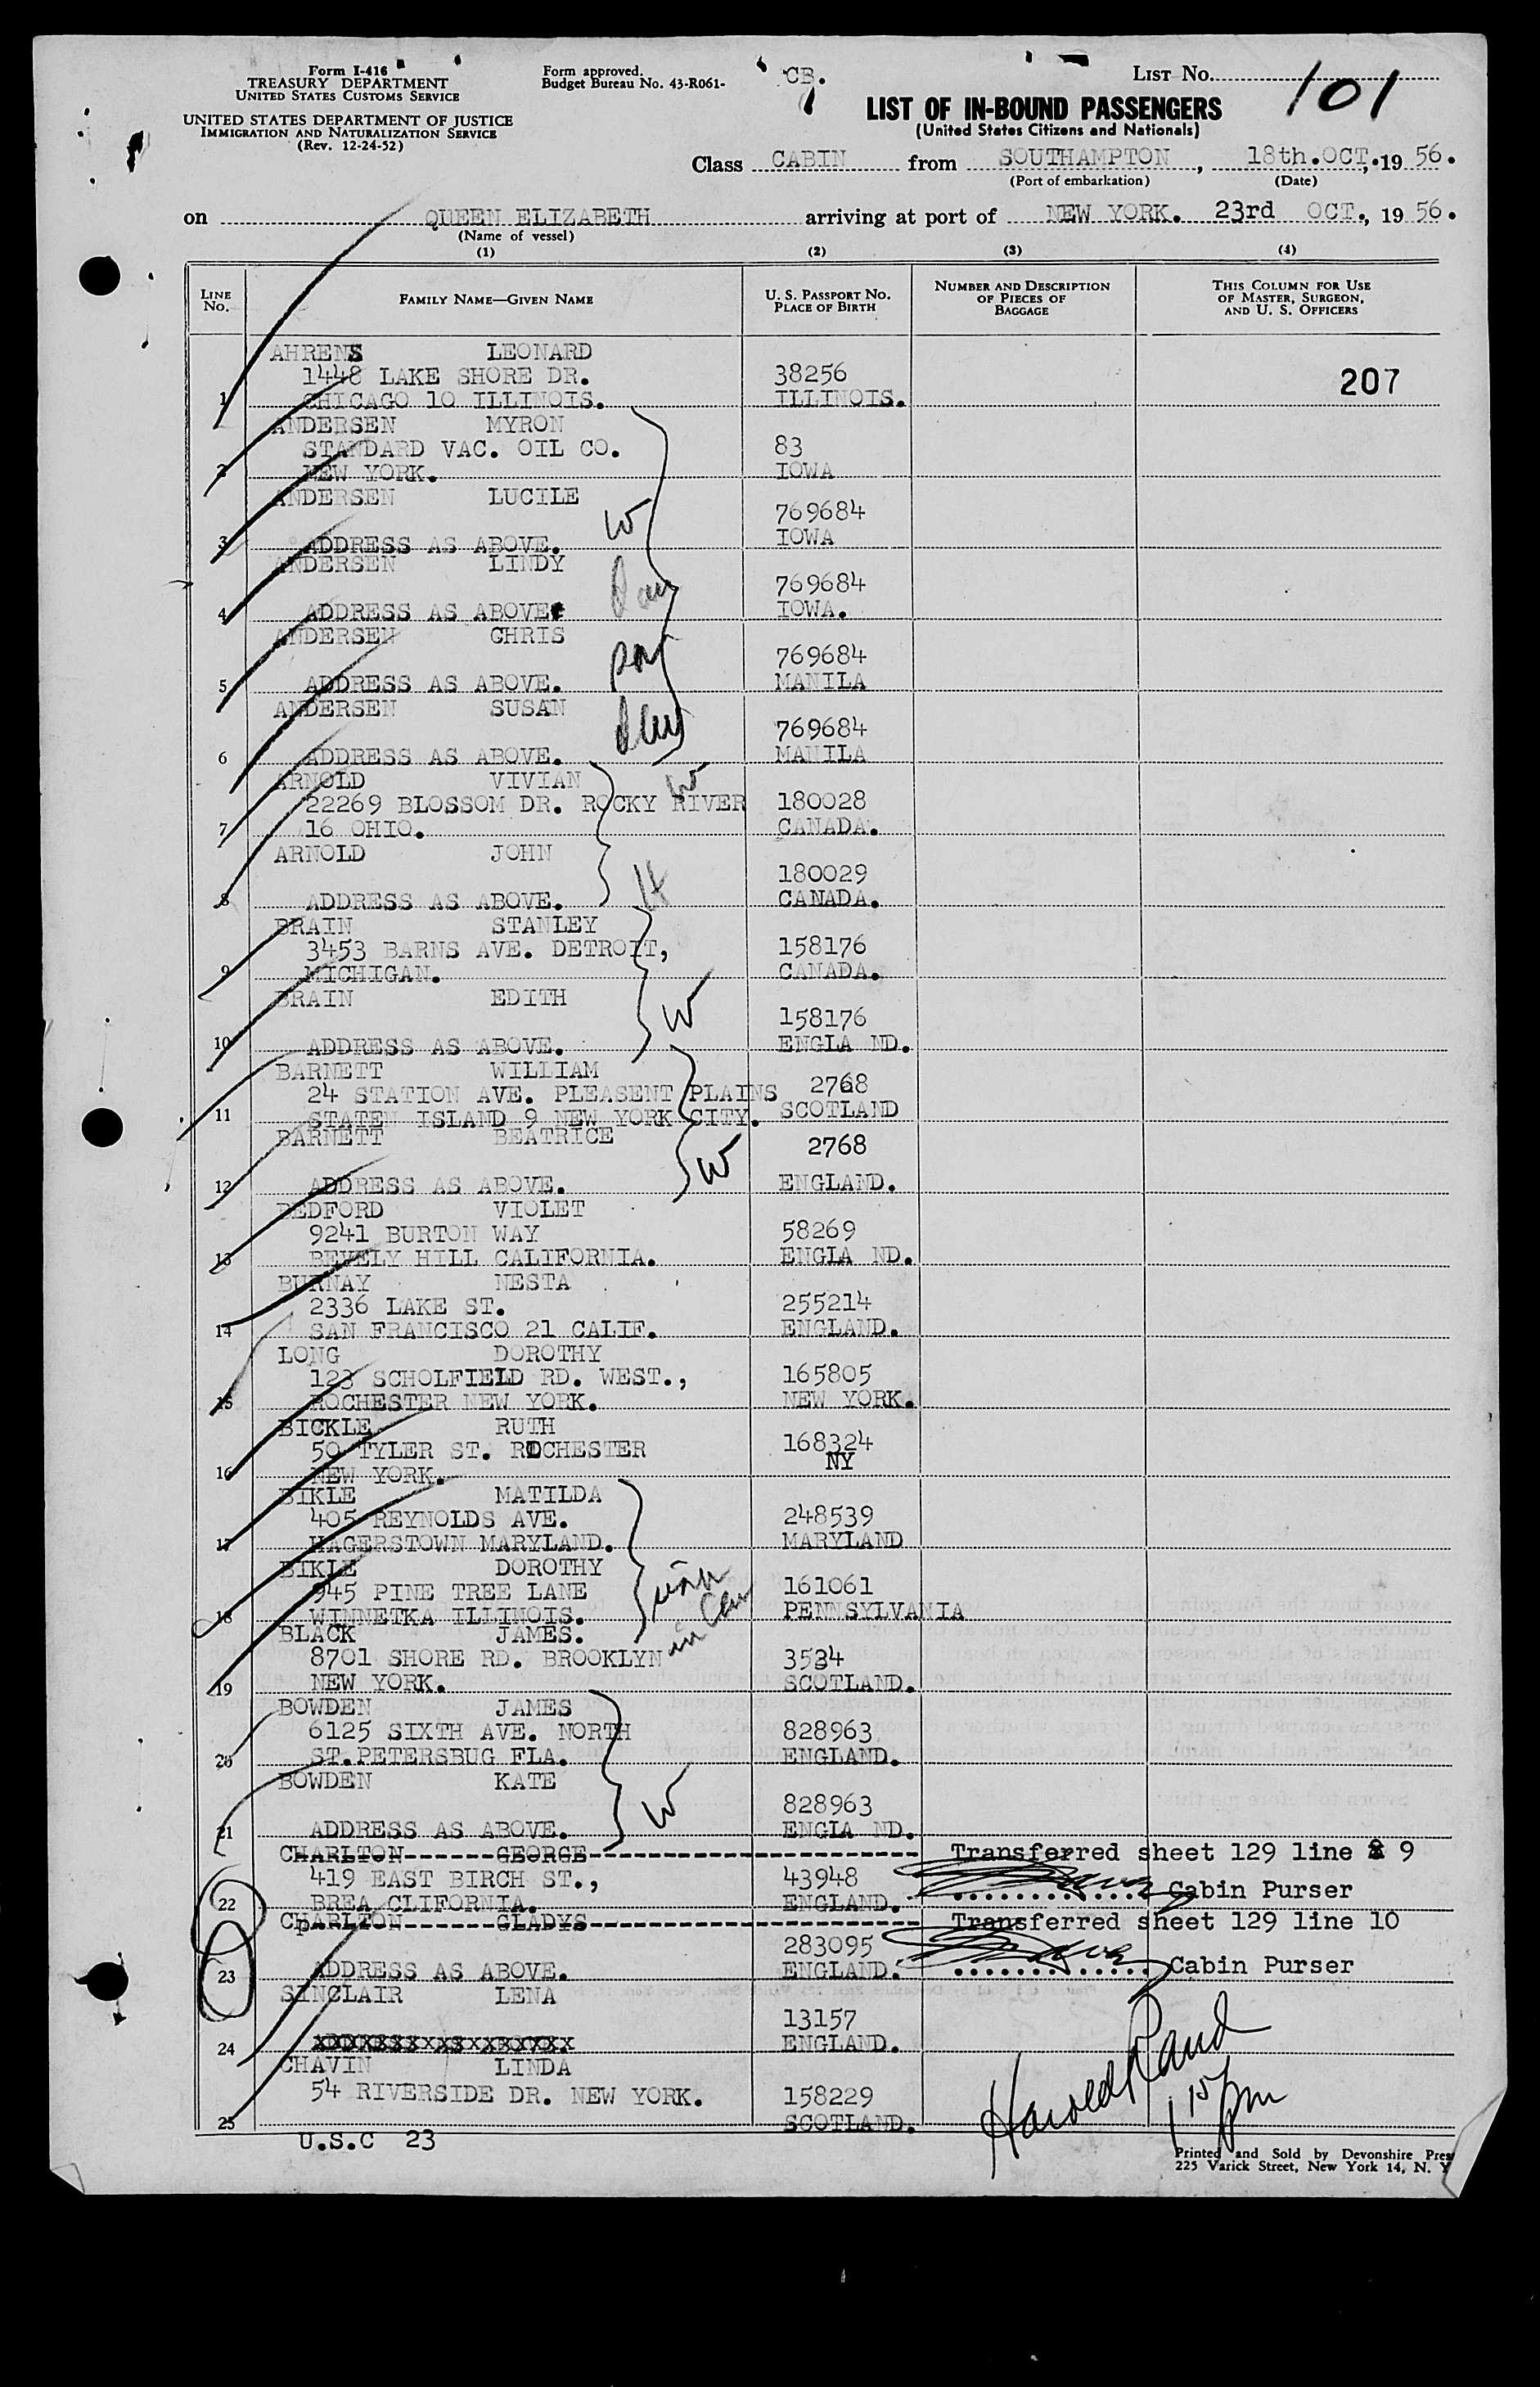 Form I-416
TREASURY DEPARTMENT
UNITED STATES CUSTOMS SERVICE
UNITED STATES DEPARTMENT OF JUSTICE
IMMIGRATION AND NATURALIZATION SERVICE
(Rev. 12-24-52)
Form approved.
Budget Bureau No. 43-R061-
CB.
LIST NO. 101
LIST OF IN-BOUND PASSENGERS
(United States Citizens and Nationals)
Class CABIN from SOUTHAMPTON, 18th.OCT., 19 56.
(Port of embarkation) (Date)
on QUEEN ELIZABETH arriving at port of NEW YORK. 23rd OCT., 19 56.
(Name of vessel)
(1) (2) (3) (4)
LINE NO. FAMILY NAME—GIVEN NAME U. S. PASSPORT NO. PLACE OF BIRTH NUMBER AND DESCRIPTION OF PIECES OF BAGGAGE THIS COLUMN FOR USE OF MASTER, SURGEON, AND U. S. OFFICERS
AHRENS LEONARD
1448 LAKE SHORE DR. 38256 207
1 CHICAGO 10 ILLINOIS. ILLINOIS.
ANDERSEN MYRON
STANDARD VAC. OIL CO. 83
2 NEW YORK. IOWA
ANDERSEN LUCILE
W 769684
3 ADDRESS AS ABOVE. IOWA
ANDERSEN LINDY
Dau 769684
4 ADDRESS AS ABOVE. IOWA.
ANDERSEN CHRIS
son 769684
5 ADDRESS AS ABOVE. MANILA
ANDERSEN SUSAN
Dau 769684
6 ADDRESS AS ABOVE. MANILA
ARNOLD VIVIAN W
22269 BLOSSOM DR. ROCKY RIVER 180028
7 16 OHIO. CANADA.
ARNOLD JOHN
H 180029
8 ADDRESS AS ABOVE. CANADA.
BRAIN STANLEY
3453 BARNS AVE. DETROIT, 158176
9 MICHIGAN. CANADA.
BRAIN EDITH
W 158176
10 ADDRESS AS ABOVE. ENGLA ND.
BARNETT WILLIAM
24 STATION AVE. PLEASENT PLAINS 2768
11 STATEN ISLAND 9 NEW YORK CITY. SCOTLAND
BARNETT BEATRICE 2768
W
12 ADDRESS AS ABOVE. ENGLAND.
BEDFORD VIOLET
9241 BURTON WAY 58269
13 BEVELY HILL CALIFORNIA. ENGLA ND.
BURNAY NESTA
2336 LAKE ST. 255214
14 SAN FRANCISCO 21 CALIF. ENGLAND.
LONG DOROTHY
123 SCHOLFIELD RD. WEST., 165805
15 ROCHESTER NEW YORK. NEW YORK.
BICKLE RUTH
50 TYLER ST. ROCHESTER 168324
16 NEW YORK. NY
BIKLE MATILDA
405 REYNOLDS AVE. 248539
17 HAGERSTOWN MARYLAND. MARYLAND
BIKLE DOROTHY
945 PINE TREE LANE 161061
18 WINNETKA ILLINOIS. PENNSYLVANIA
BLACK JAMES.
8701 SHORE RD. BROOKLYN 3534
19 NEW YORK. SCOTLAND.
BOWDEN JAMES
6125 SIXTH AVE. NORTH 828963
20 ST.PETERSBUG FLA. ENGLAND.
BOWDEN KATE
W 828963
21 ADDRESS AS ABOVE. ENGLA ND.
CHARLTON GEORGE Transferred sheet 129 line 9
419 EAST BIRCH ST., 43948 Cabin Purser
22 BREA CLIFORNIA. ENGLAND.
CHARLTON GLADYS Transferred sheet 129 line 10
283095
23 ADDRESS AS ABOVE. ENGLAND. Cabin Purser
SINCLAIR LENA
13157
24 ENGLAND.
CHAVIN LINDA
54 RIVERSIDE DR. NEW YORK. 158229
25 SCOTLAND.
U.S.C 23
Harold Rand
1 15 pm
Printed and Sold by Devonshire Pres
225 Varick Street, New York 14, N. Y